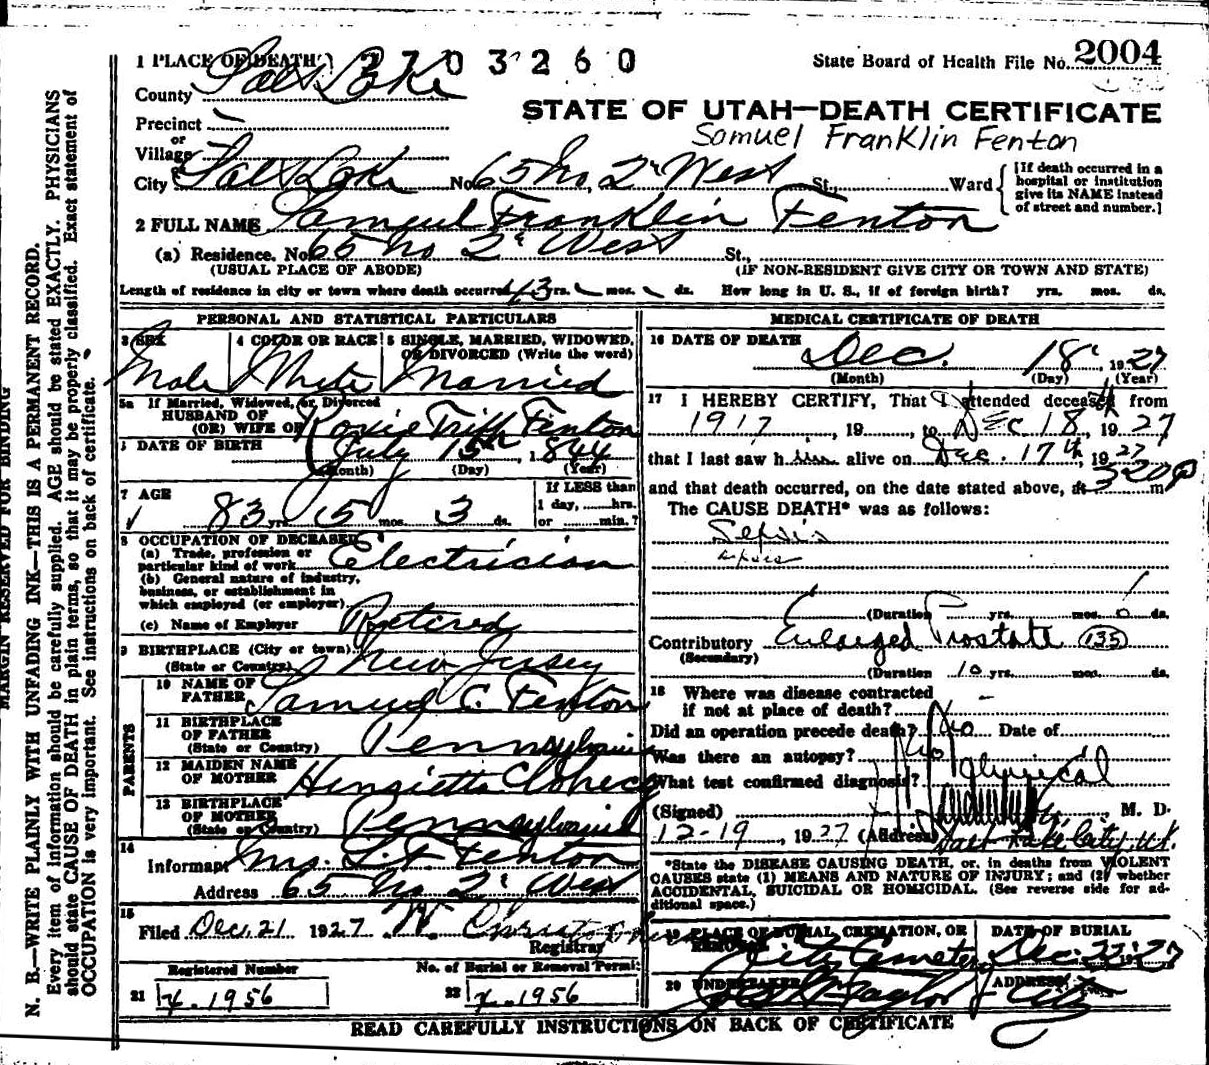 1 PLACE OF DEATH 2703260 State Board of Health File No. 2004
County Salt Lake
STATE OF UTAH—DEATH CERTIFICATE
Precinct
Samuel Franklin Fenton
or
Village
City Salt Lake No. 65 No. 2d West St., Ward
[If death occurred in a hospital or institution give its NAME instead of street and number.]
2 FULL NAME Samuel Franklin Fenton
(a) Residence. No. 65 No 2d West St.,
(USUAL PLACE OF ABODE) (IF NON-RESIDENT GIVE CITY OR TOWN AND STATE)
Length of residence in city or town where death occurred 43 yrs. mos. ds. How long in U. S., if of foreign birth? yrs. mos. ds.
PERSONAL AND STATISTICAL PARTICULARS
3 SEX 4 COLOR OR RACE 5 SINGLE, MARRIED, WIDOWED, OR DIVORCED (Write the word)
Male White Married
5a If Married, Widowed, or Divorced
HUSBAND OF
(OR) WIFE OF Roxie Tritt Fenton
DATE OF BIRTH July 15th, 1844
(Month) (Day) (Year)
7 AGE 83 yrs 5 mos. 3 ds.
If LESS than
1 day, hrs.
or min.?
8 OCCUPATION OF DECEASED
(a) Trade, profession or
particular kind of work Electrician
(b) General nature of industry,
business, or establishment in
which employed (or employer)
(c) Name of Employer Retired
9 BIRTHPLACE (City or town)
(State or Country) New Jersey
PARENTS
10 NAME OF
FATHER Samuel C. Fenton
11 BIRTHPLACE
OF FATHER
(State or Country) Pennsylvania
12 MAIDEN NAME
OF MOTHER Henrietta
13 BIRTHPLACE
OF MOTHER
(State or Country) Pennsylvania
14
Informant Mrs. S. F. Fenton
Address 65 No 2d West
15
Filed Dec. 21 1927 W.
Registrar
Registered Number No. of Burial or Removal Permit
21 X.1956 22 X.1956
MEDICAL CERTIFICATE OF DEATH
16 DATE OF DEATH Dec. 18, 1927
(Month) (Day) (Year)
17 I HEREBY CERTIFY, That I attended deceased from
1917, 19, to Dec 18, 1927
that I last saw him alive on Dec. 17th, 1927
and that death occurred, on the date stated above, at 320 p m
The CAUSE DEATH* was as follows:
Sepsis
sepsis
(Duration yrs. mos. ds.
Contributory Enlarged Prostate 135
(Secondary)
(Duration 10 yrs. mos. ds.
18 Where was disease contracted
if not at place of death? -
Did an operation precede death? No Date of
Was there an autopsy? No
What test confirmed diagnosis? Clinical
(Signed) M. D.
12-19, 1927 (Address) Salt Lake City, Ut.
*State the DISEASE CAUSING DEATH, or, in deaths from VIOLENT
CAUSES state (1) MEANS AND NATURE OF INJURY; and (2) whether
ACCIDENTAL, SUICIDAL OR HOMICIDAL. (See reverse side for ad-
ditional space.)
19 PLACE OF BURIAL, CREMATION, OR REMOVAL DATE OF BURIAL
City Cemetery Dec. 22 1927
20 UNDERTAKER ADDRESS
Taylor City
READ CAREFULLY INSTRUCTIONS ON BACK OF CERTIFICATE
MARGIN RESERVED FOR BINDING
N. B.—WRITE PLAINLY WITH UNFADING INK—THIS IS A PERMANENT RECORD.
Every item of information should be carefully supplied. AGE should be stated EXACTLY. PHYSICIANS
should state CAUSE OF DEATH in plain terms, so that it may be properly classified. Exact statement of
OCCUPATION is very important. See instructions on back of certificate.